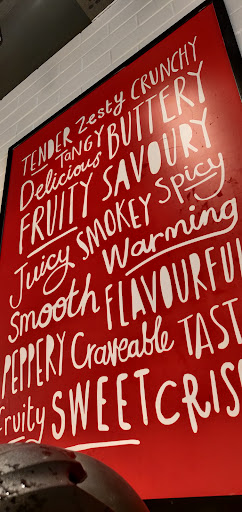 TENDER Zesty CRUNCHY
TANGY
Delicious BUTTERY
FRUITY SAVOURY
Juicy SMOKEY Spicy
Warming
Smooth FLAVOURFUL
PEPPERY Craveable TAST
fruity SWEET CRIS